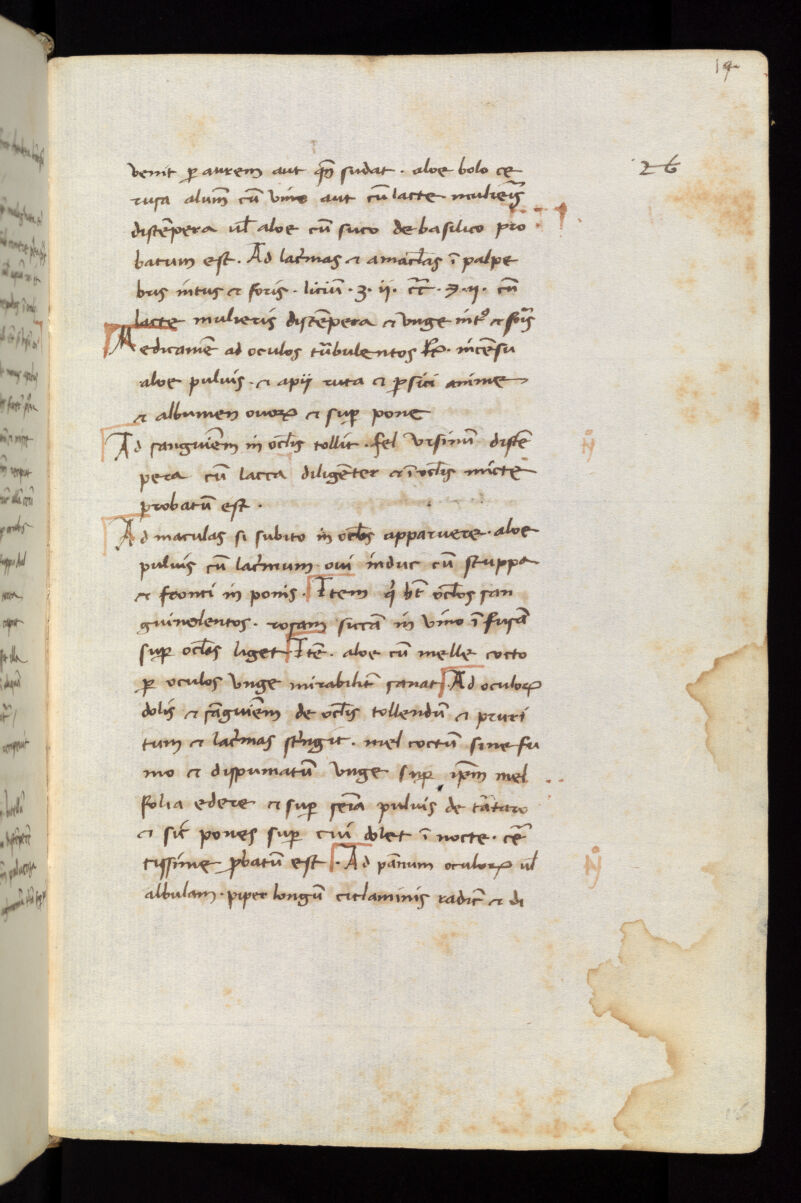 19
26
venit ꝑ aurem aut qn̄ sudat . aloe bolo ce
rusa alum̄ cū vino aut cū lacte mulieris
distēpera ul̄ aloe cū suco de basilico pro
batum est . Ad lacrimas et amaculas ī palpe
bris intus et foris . liciū . ʒ . ii . . ii . cū
lacte mulieris distēpera et unge intꝰ et foris
Medicamē ad oculos turbulentos . incēsu
aloe puluis . et apij ruta et persici anime
et albumen ovoꝝ et suꝑ pone
Ad sanguiēm in oclis tollit . fel ursinū distē
pera cū lacca diligēter et ī oclis micte
probatū est .
Ad maculas si subito in oclos apparuere . aloe
puluis cū lacrimum ovi induc cū stuppa
et fronti in ponis . Item qi ht̄ oclos san
guinelentos . rosam siccā in vino īfusā
suꝑ oclos liget Itē . aloe cū melle cocto
ꝑ oculos unge mirabilit̄ sanat Ad oculoꝝ
dolis et sāguiēm de oclis tollendū et pruri
tum et lacrimas strīgit . mel coctū sine fu
mo et dispumatū unge suꝑ ip̄m mel
folia edere et suꝑ puluis de tartaro
et sic pones suꝑ cui dolet ī nocte . cer
tissime probatū est . Ad pānum oculoꝝ ul̄
albulam . piper longū ciclaminis radic̄ et di